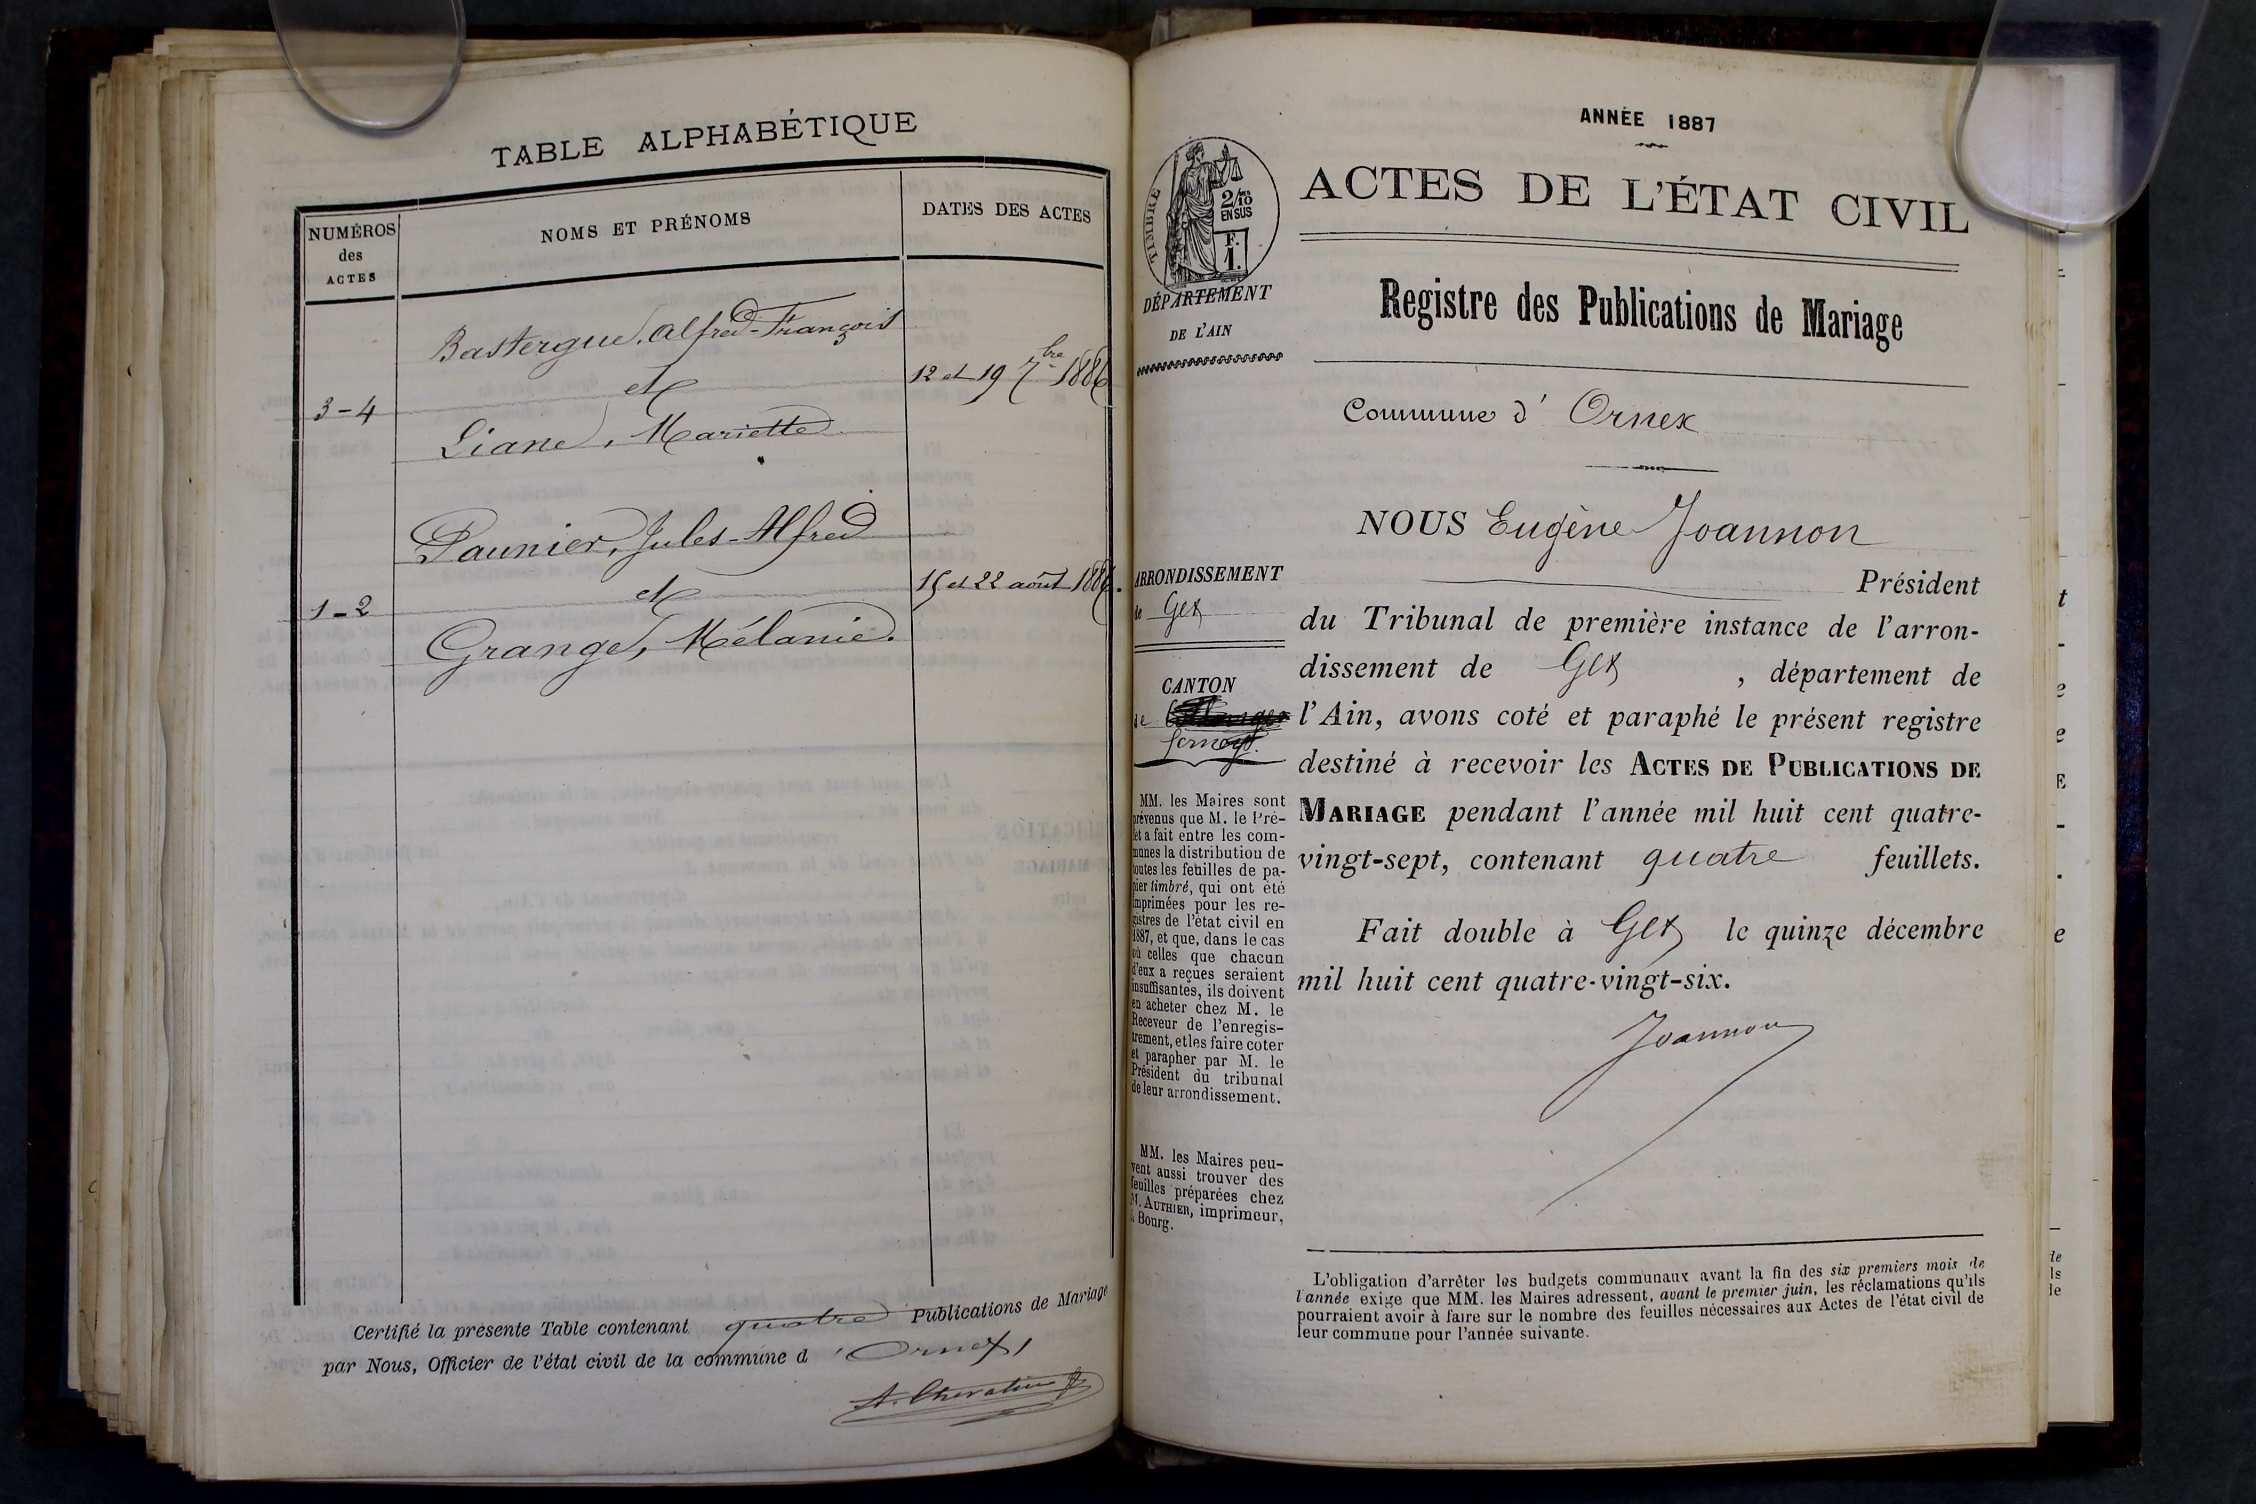 TABLE ALPHABÉTIQUE
NUMÉROS
des
ACTES
NOMS ET PRÉNOMS
DATES DES ACTES
Bastergue, Alfred-François
et
3-4
12 et 19 7bre 1886
Liane, Mariette
Paunier, Jules-Alfred
et
1-2
15 et 22 août 1886.
Grange, Mélanie.
Certifié la présente Table contenant quatre Publications de Mariage
par Nous, Officier de l'état civil de la commune d'Ornex,
ANNÉE 1887
ACTES DE L'ÉTAT CIVIL
TIMBRE
2/10
EN SUS
F.
1.
DÉPARTEMENT
DE L'AIN
Registre des Publications de Mariage
Commune d'Ornex
NOUS Eugène Joannon
Président
du Tribunal de première instance de l'arron-
dissement de Gex, département de
l'Ain, avons coté et paraphé le présent registre
destiné à recevoir les ACTES DE PUBLICATIONS DE
MARIAGE pendant l'année mil huit cent quatre-
vingt-sept, contenant quatre feuillets.
Fait double à Gex le quinze décembre
mil huit cent quatre-vingt-six.
Joannon
ARRONDISSEMENT
de Gex
CANTON
de
Ferney.
MM. les Maires sont
prévenus que M. le Pré-
fet a fait entre les com-
munes la distribution de
toutes les feuilles de pa-
pier timbré, qui ont été
imprimées pour les re-
gistres de l'état civil en
1887, et que, dans le cas
où celles que chacun
d'eux a reçues seraient
insuffisantes, ils doivent
en acheter chez M. le
Receveur de l'enregis-
trement, et les faire coter
et parapher par M. le
Président du tribunal
de leur arrondissement.
MM. les Maires peu-
vent aussi trouver des
feuilles préparées chez
M. AUTHIER, imprimeur,
à Bourg.
L'obligation d'arrêter les budgets communaux avant la fin des six premiers mois de
l'année exige que MM. les Maires adressent, avant le premier juin, les réclamations qu'ils
pourraient avoir à faire sur le nombre des feuilles nécessaires aux Actes de l'état civil de
leur commune pour l'année suivante.